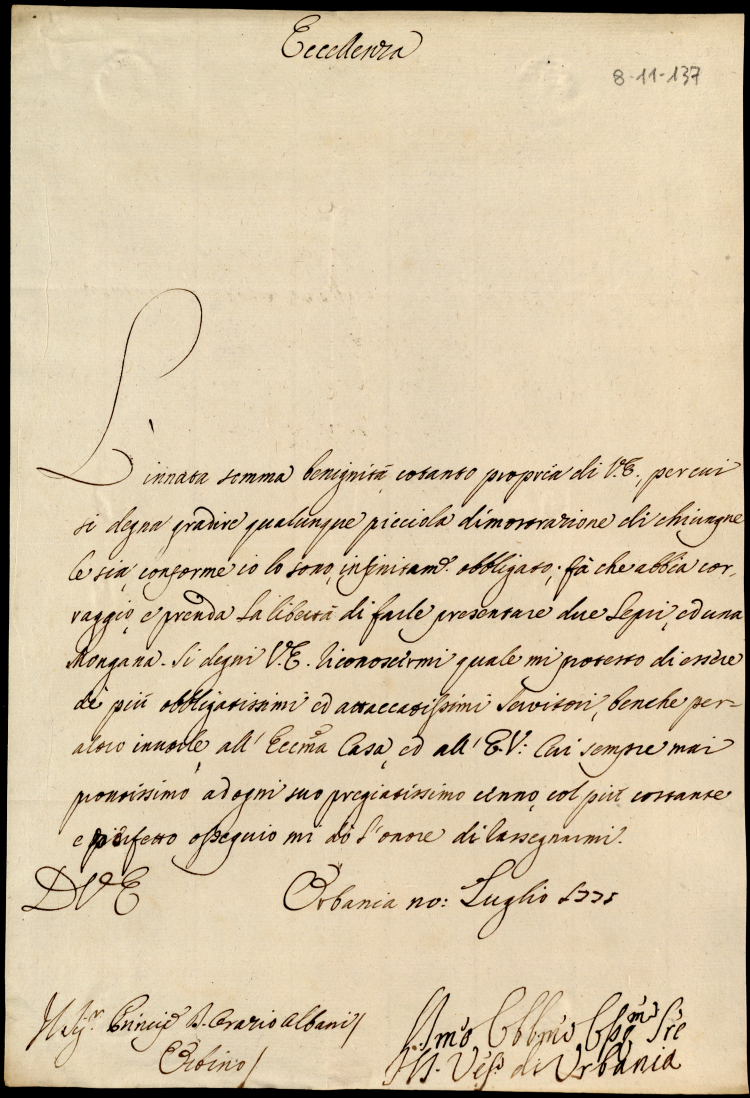 Eccellenza
8-11-137
L'innata somma benignità cotanto propria di V.E., per cui
si degna gradire qualunque picciola dimostrazione di chiunque
le sia, conforme io lo sono, infinitam.e obbligato, fà che abbia cor,
raggio, e prenda la libertà di farle presentare due Lepri, ed una
Mongana. Si degni V.E. riconoscermi quale mi protesto di essere
de più obbligatissimi ed attaccatissimi Servitori, benche per-
altro inutile all' Eccma Casa, ed all' E.V: Cui sempre mai
prontissimo ad ogni suo pregiatissimo cenno, col più costante
e perfetto ossequio mi dò l'onore di rassegnarmi.
D V E
Urbania Luglio
Sig.r Princip.e D. Orazio Albani
Urbino
Obbmo Serre
Vesc.o di Urbania